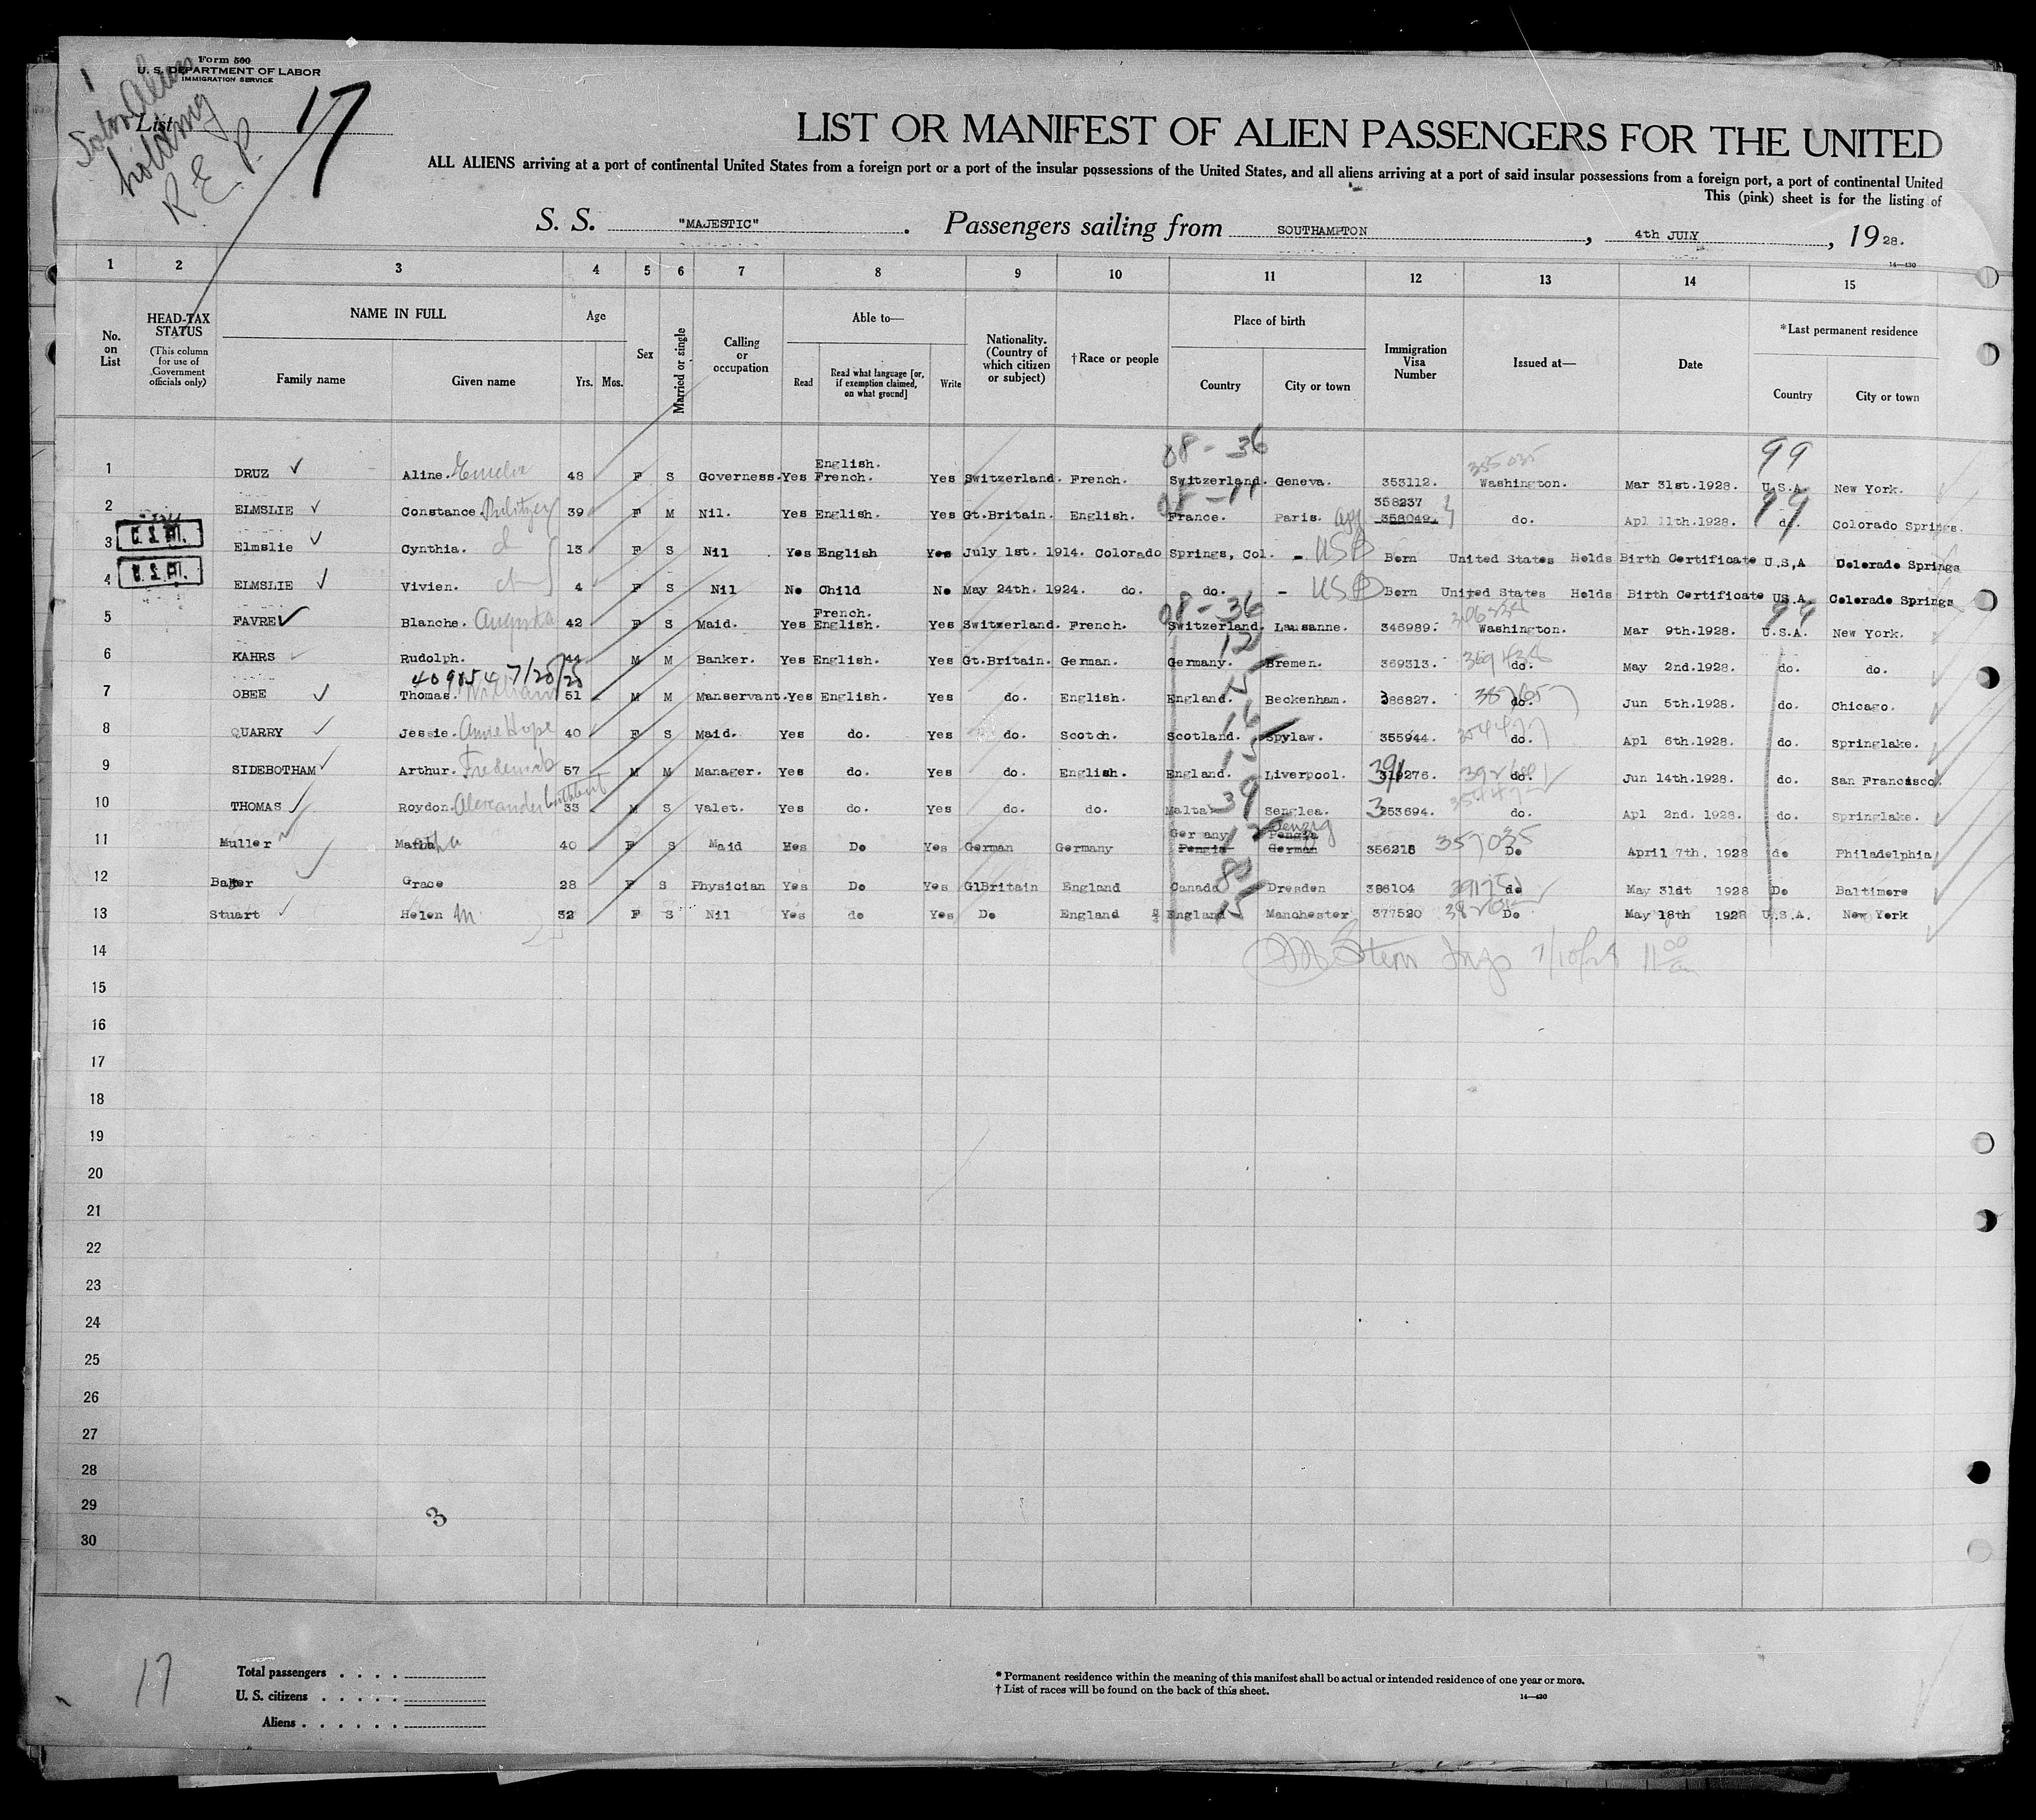 Form 500
U. S. DEPARTMENT OF LABOR
IMMIGRATION SERVICE
List 17
holding
R. E. P.
LIST OR MANIFEST OF ALIEN PASSENGERS FOR THE UNITED
ALL ALIENS arriving at a port of continental United States from a foreign port or a port of the insular possessions of the United States, and all aliens arriving at a port of said insular possessions from a foreign port, a port of continental United
This (pink) sheet is for the listing of
S. S. "MAJESTIC". Passengers sailing from SOUTHAMPTON, 4th JULY, 1928.
14—430
1 2 3 4 5 6 7 8 9 10 11 12 13 14 15
No. on List
HEAD-TAX STATUS
(This column for use of Government officials only)
NAME IN FULL
Family name Given name
Age
Yrs. Mos.
Sex
Married or single
Calling or occupation
Able to—
Read
Read what language [or, if exemption claimed, on what ground]
Write
Nationality. (Country of which citizen or subject)
†Race or people
Place of birth
Country City or town
Immigration Visa Number
Issued at—
Date
*Last permanent residence
Country City or town
08-36 355035 99
1 DRUZ Aline. Emelie 48 F S Governess. Yes English. French. Yes Switzerland. French. Switzerland. Geneva. 353112. Washington. Mar 31st.1928. U.S.A. New York.
2 ELMSLIE Constance. Pulitzer 39 F M Nil. Yes English. Yes Gt.Britain. English. France. Paris. 358237 358049. do. Apl 11th.1928. do. Colorado Springs.
U.S.M.
3 Elmslie Cynthia. 13 F S Nil Yes English Yes July 1st. 1914. Colorado Springs, Col. - USB Born United States Holds Birth Certificate U.S,A Colorado Springs
U.S.M.
4 ELMSLIE Vivien. 4 F S Nil No Child No May 24th. 1924. do. do. - USB Born United States Holds Birth Certificate US.A. Colorado Springs
08-36 99
5 FAVRE Blanche. Augusta 42 F S Maid. Yes French. English. Yes Switzerland. French. Switzerland. Lausanne. 346989. Washington. Mar 9th.1928. U.S.A. New York.
6 KAHRS Rudolph. 44 M M Banker. Yes English. Yes Gt.Britain. German. Germany. 12 Bremen. 369313. do. May 2nd.1928. do. do.
409154 7/25/28
7 OBEE Thomas. William 51 M M Manservant. Yes English. Yes do. English. England. 15 Beckenham. 386827. do. Jun 5th.1928. do. Chicago.
8 QUARRY Jessie. Annie Hope 40 F S Maid. Yes do. Yes do. Scotch. Scotland. 16 Spylaw. 355944. do. Apl 6th.1928. do. Springlake.
9 SIDEBOTHAM Arthur. Frederick 57 M M Manager. Yes do. Yes do. English. England. 15 Liverpool. 391276. do. Jun 14th.1928. do. San Francisco.
10 THOMAS Roydon. Alexander Cuthbert 33 M S Valet. Yes do. Yes do. do. Malta 39 Senglea. 353694. do. Apl 2nd.1928. do. Springlake.
11 Muller Martha 40 F S Maid Yes Do Yes German Germany Germany 12 Danzig German 356218 357035 Do April 7th. 1928 do Philadelphia
12 Baker Grace 28 F S Physician Yes Do Yes GlBritain England Canada 80 Dresden 386104 do May 31dt 1928 Do Baltimore
13 Stuart Helen M. 32 F S Nil Yes do Yes Do England England 15 Manchester 377520 Do May 18th 1928 U.S.A. New York
14 Stern Insp 7/10/28 11 00 am
15
16
17
18
19
20
21
22
23
24
25
26
27
28
29
30
3
17
Total passengers . . . .
U. S. citizens . . . . .
Aliens . . . . . .
* Permanent residence within the meaning of this manifest shall be actual or intended residence of one year or more.
† List of races will be found on the back of this sheet.
14—430